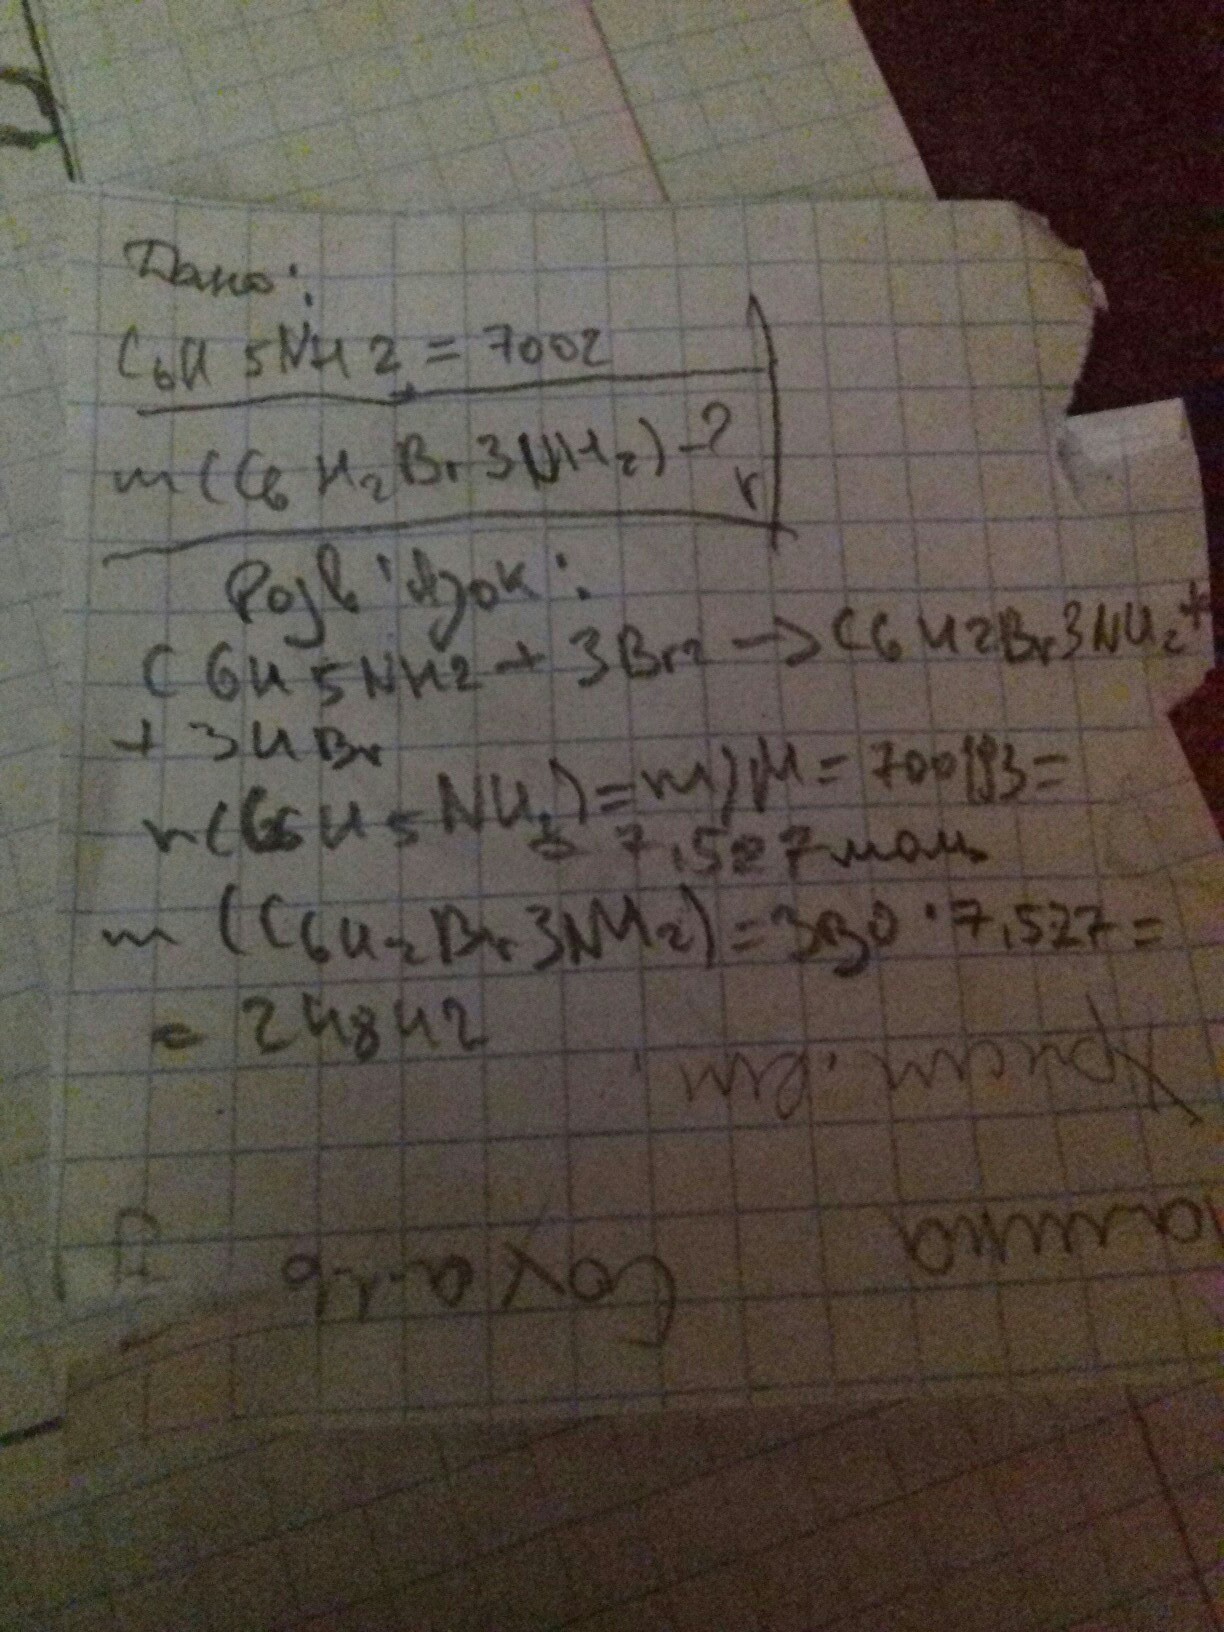 Дано:
C6H5NH2 = 700г
m(C6H2Br3NH2) - ?
Розв'язок:
C6H5NH2 + 3Br2 → C6H2Br3NH2 +
+ 3HBr
n(C6H5NH2) = m/M = 700/93 =
= 7,527 моль
m (C6H2Br3NH2) = 330 · 7,527 =
= 2484г